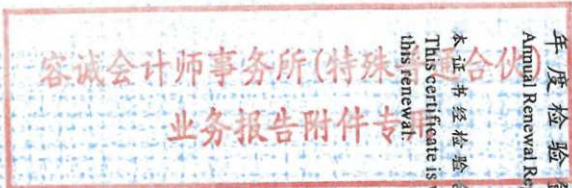 容诚会计师事务所(特殊普通合伙)
业务报告附件专用
年度检验
Annual Renewal Re
本证书经检验
This certificate is
this renewal.